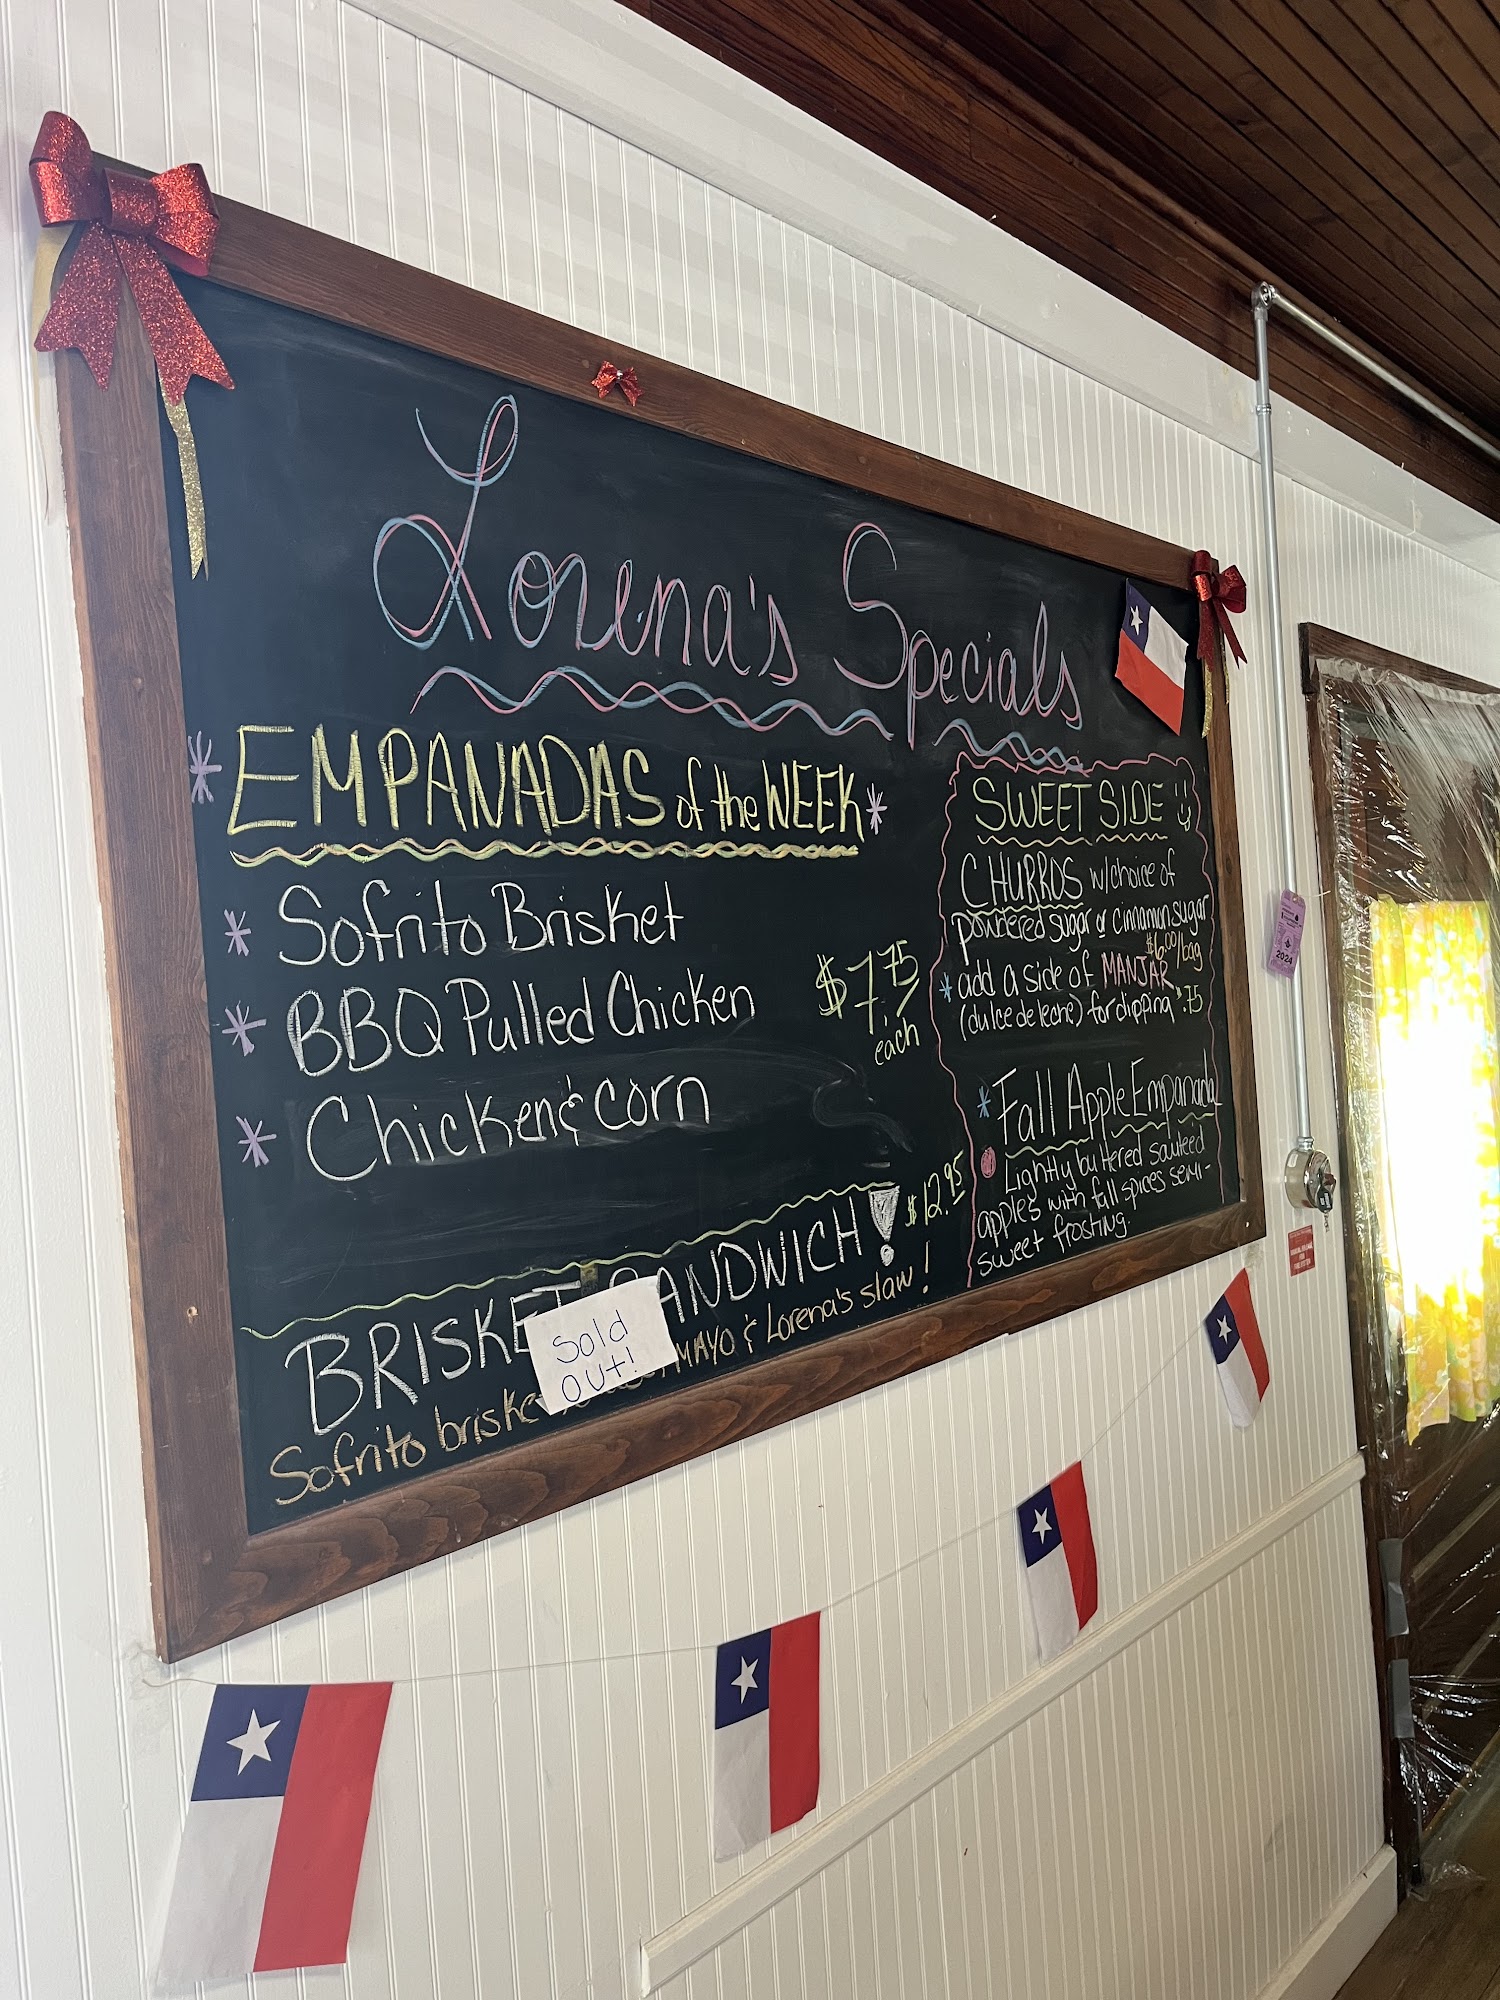 Lorena's Specials
* EMPANADAS of the WEEK *
* Sofrito Brisket
* BBQ Pulled Chicken
* Chicken & Corn
$7.75
each
BRISKET SANDWICH! $12.95
Sofrito brisket MAYO & Lorena's slaw!
Sold
OUT!
SWEET SIDE
CHURROS w/choice of
powdered sugar or cinnamon sugar
$6.00/bag
* add a side of MANJAR
(dulce de leche) for dipping $.75
* Fall Apple Empanada
Lightly buttered sauteed
apples with fall spices semi-
sweet frosting.
2024